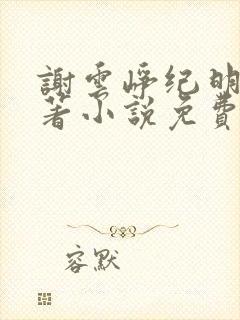 謝雲崢纪明
著小説免費
容默